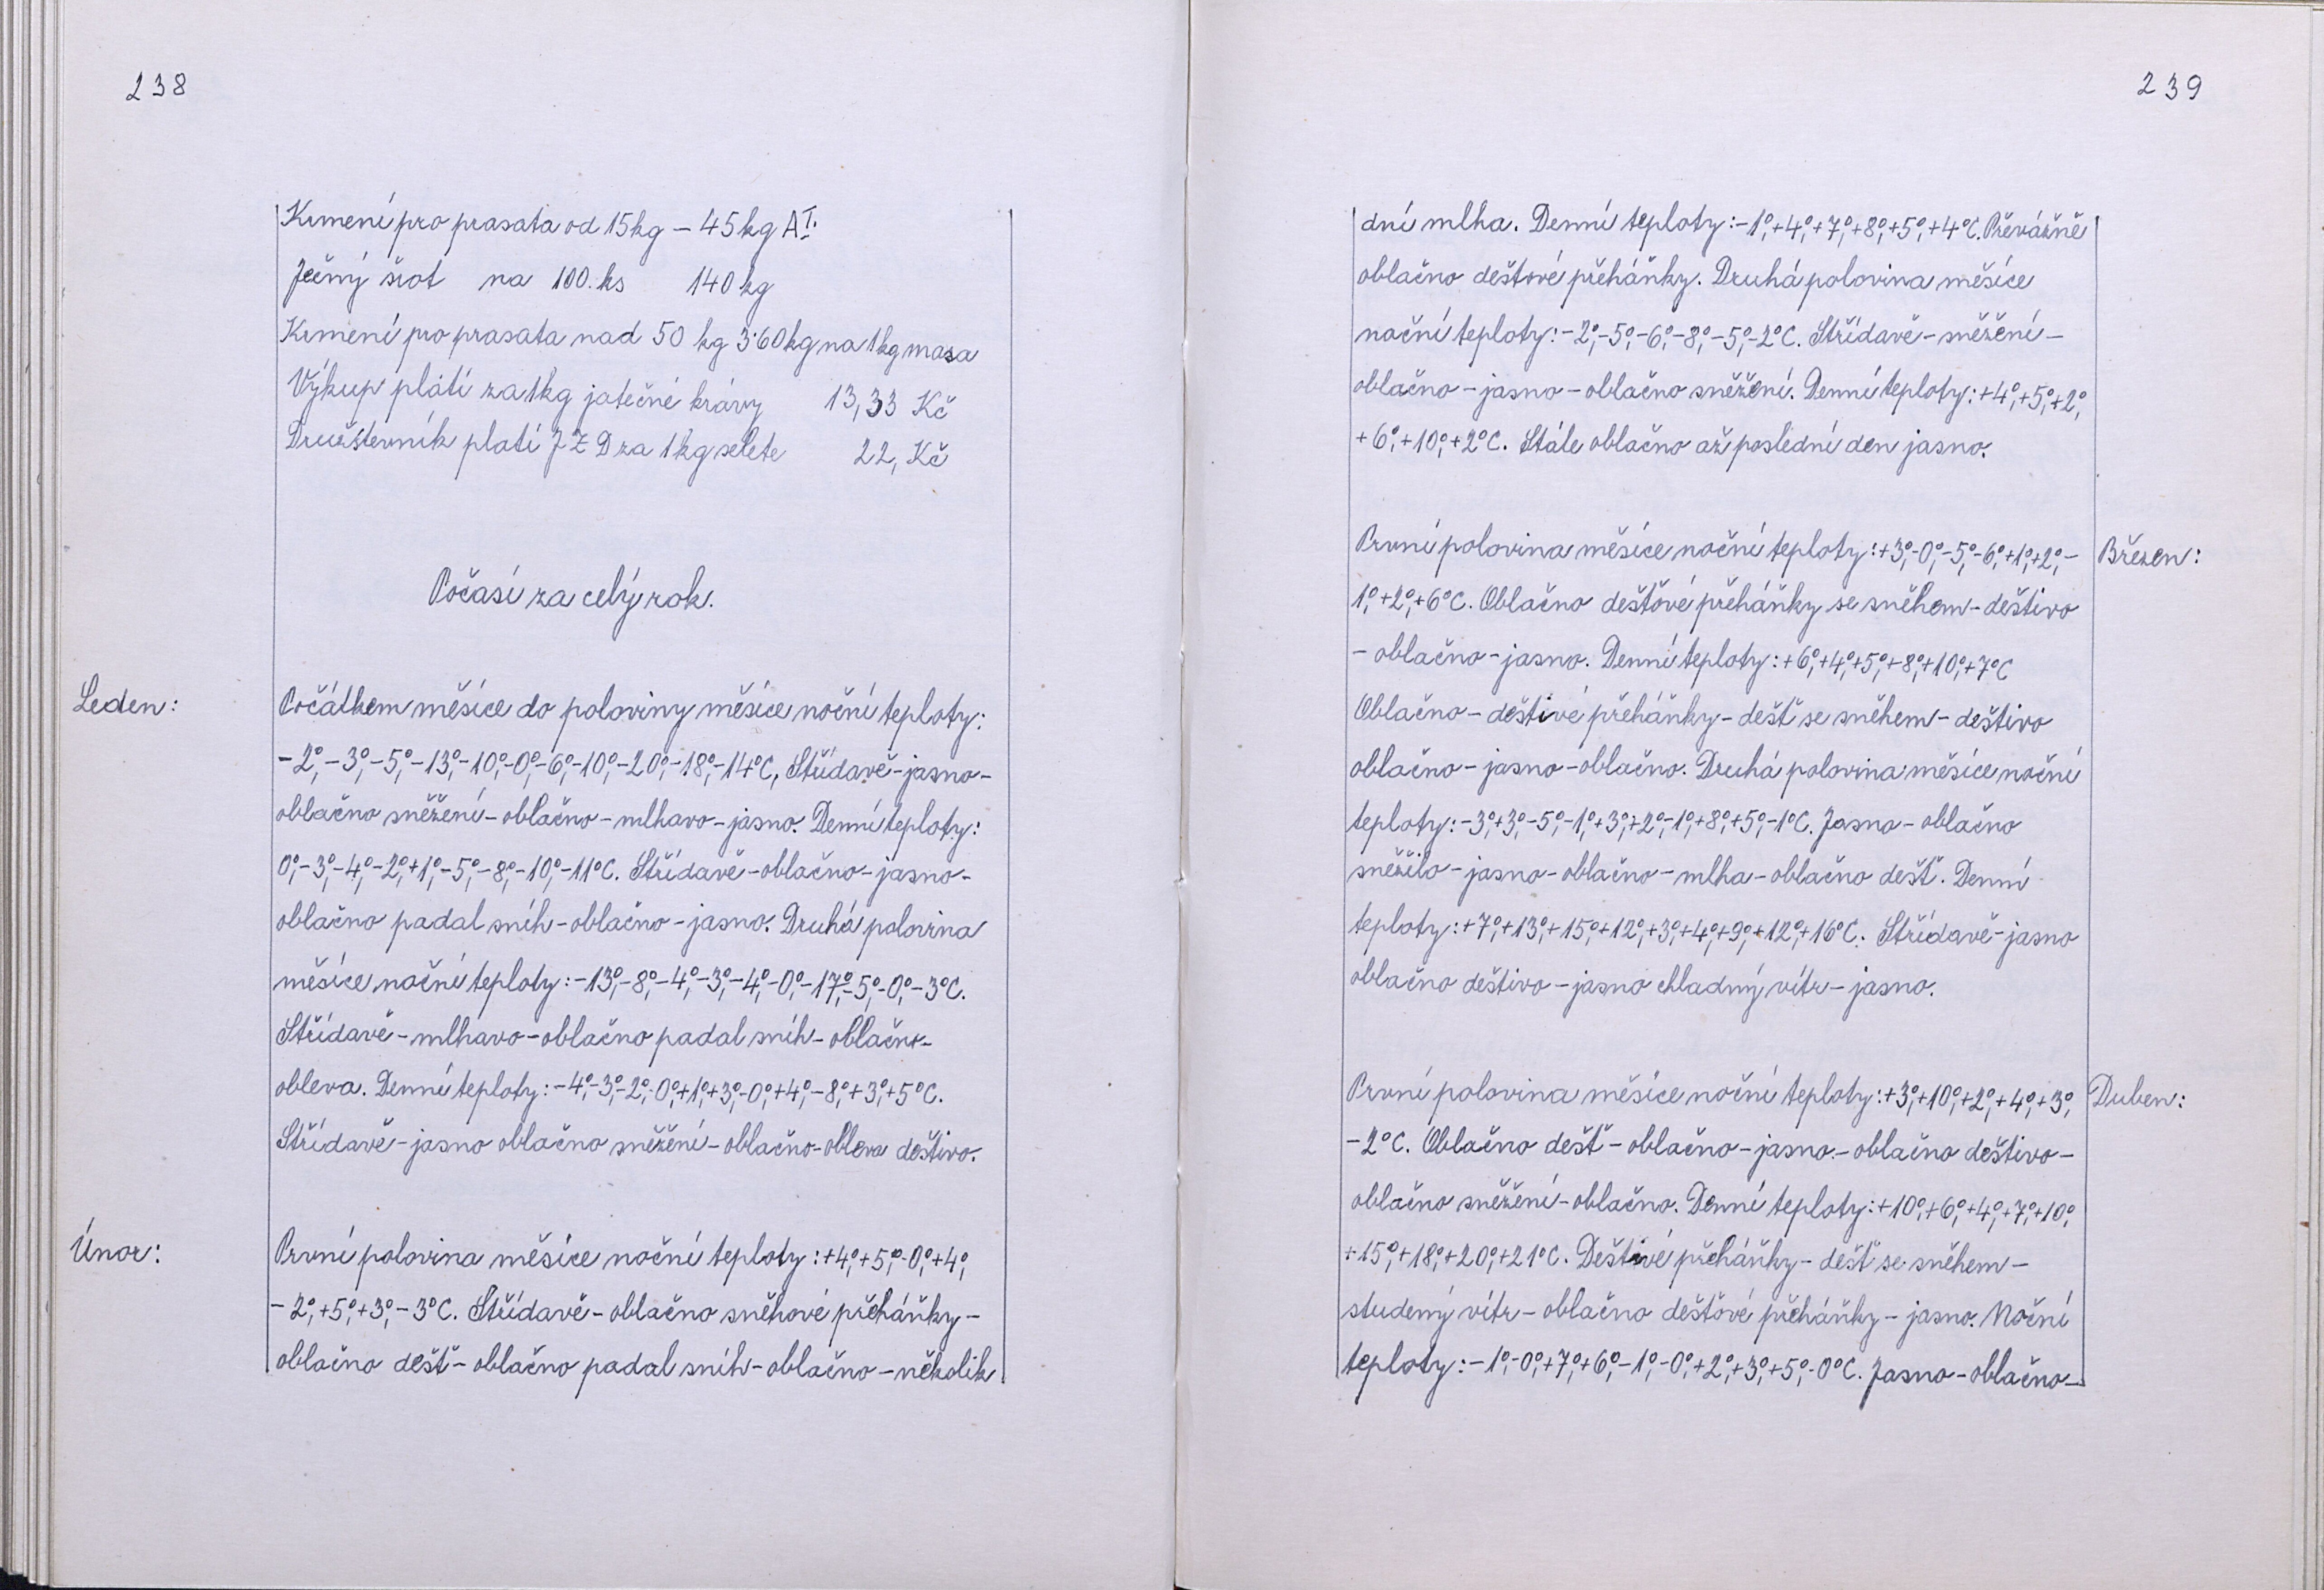 238
Krmení pro prasata od 15kg – 45kg A I.
Ječný šrot na 100.ks 140 kg
Krmení pro prasata nad 50 kg 3·60kg na 1kg masa
Výkup platí za 1kg jatečné krávy 13,33 Kč
Družstevník platí JZD za 1kg selete 22, Kč
Počasí za celý rok.
Leden:
Počátkem měsíce do poloviny měsíce noční teploty:
-2°, -3°, -5°, -13°, -10°, -0°, -6°, -10°, -20°, -18°, -14°C, Střídavě - jasno -
oblačno sněžení - oblačno - mlhavo - jasno. Denní teploty:
0°, -3°, -4°, -2°, +1°, -5°, -8°, -10°, -11°C. Střídavě - oblačno - jasno -
oblačno padal sníh - oblačno - jasno. Druhá polovina
měsíce noční teploty: -13°, -8°, -4°, -3°, -4°, -0°, -17°, -5°, -0°, -3°C.
Střídavě - mlhavo - oblačno padal sníh - oblačno -
obleva. Denní teploty: -4°, -3°, -2°, -0°, +1°, +3°, -0°, +4°, -8°, +3°, +5°C.
Střídavě - jasno oblačno sněžení - oblačno - obleva deštivo.
Únor:
První polovina měsíce noční teploty: +4°, +5°, -0°, +4°,
-2°, +5°, +3°, -3°C. Střídavě - oblačno sněhové přeháňky -
oblačno dešť - oblačno padal sníh - oblačno - několik
239
dní mlha. Denní teploty: -1°, +4°, +7°, +8°, +5°, +4°C. Převážně
oblačno deštové přeháňky. Druhá polovina měsíce
noční teploty: -2°, -5°, -6°, -8°, -5°, -2°C. Střídavě - sněžení -
oblačno - jasno - oblačno sněžení. Denní teploty: +4°, +5°, +2°,
+6°, +10°, +2°C. Stále oblačno až poslední den jasno.
Březen:
První polovina měsíce noční teploty: +3°, -0°, -5°, -6°, +1°, +2°, -
1°, +2°, +6°C. Oblačno dešťové přeháňky se sněhem - deštivo
- oblačno - jasno. Denní teploty: +6°, +4°, +5°, +8°, +10°, +7°C
Oblačno - deštivé přeháňky - dešť se sněhem - deštivo
oblačno - jasno - oblačno. Druhá polovina měsíce noční
teploty: -3°, +3°, -5°, -1°, +3°, +2°, -1°, +8°, +5°, -1°C. Jasno - oblačno
sněžilo - jasno - oblačno - mlha - oblačno dešť. Denní
teploty: +7°, +13°, +15°, +12°, +3°, +4°, +9°, +12°, +16°C. Střídavě - jasno
oblačno deštivo - jasno chladný vítr - jasno.
Duben:
První polovina měsíce noční teploty: +3°, +10°, +2°, +4°, +3°,
-2°C. Oblačno dešť - oblačno - jasno - oblačno deštivo -
oblačno sněžení - oblačno. Denní teploty: +10°, +6°, +4°, +7°, +10°,
+15°, +18°, +20°, +21°C. Deštivé přeháňky - dešť se sněhem -
studený vítr - oblačno dešťové přeháňky - jasno. Noční
teploty: -1°, -0°, +7°, +6°, -1°, -0°, +2°, +3°, +5°, -0°C. Jasno - oblačno -